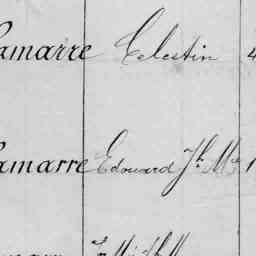 amarre Celestin 4
amarre Edouard Jh Me 1